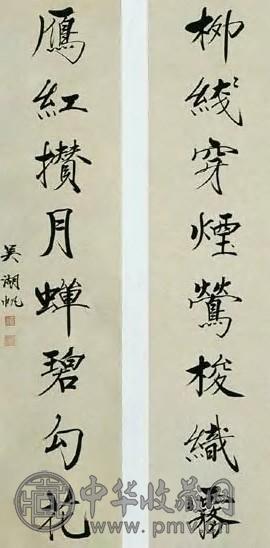 柳綫穿煙鶯梭織霧
鴈紅攢月蟬碧勾花
吳湖帆
中华收藏网